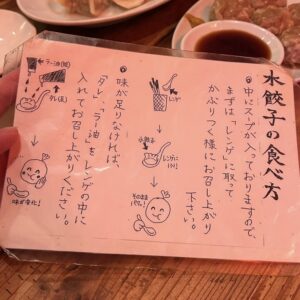 水餃子の食べ方
◎中にスープが入っておりますので、
まずは、「レンゲ」に取って
かぶりつく様にお召し上がり
下さい。
レンゲ
水餃子
レンゲに
そのまま
パクッ!
◎味が足りなければ、
「タレ」、「ラー油」をレンゲの中に
入れてお召し上がりください。
ラー油
タレ
味が変化!